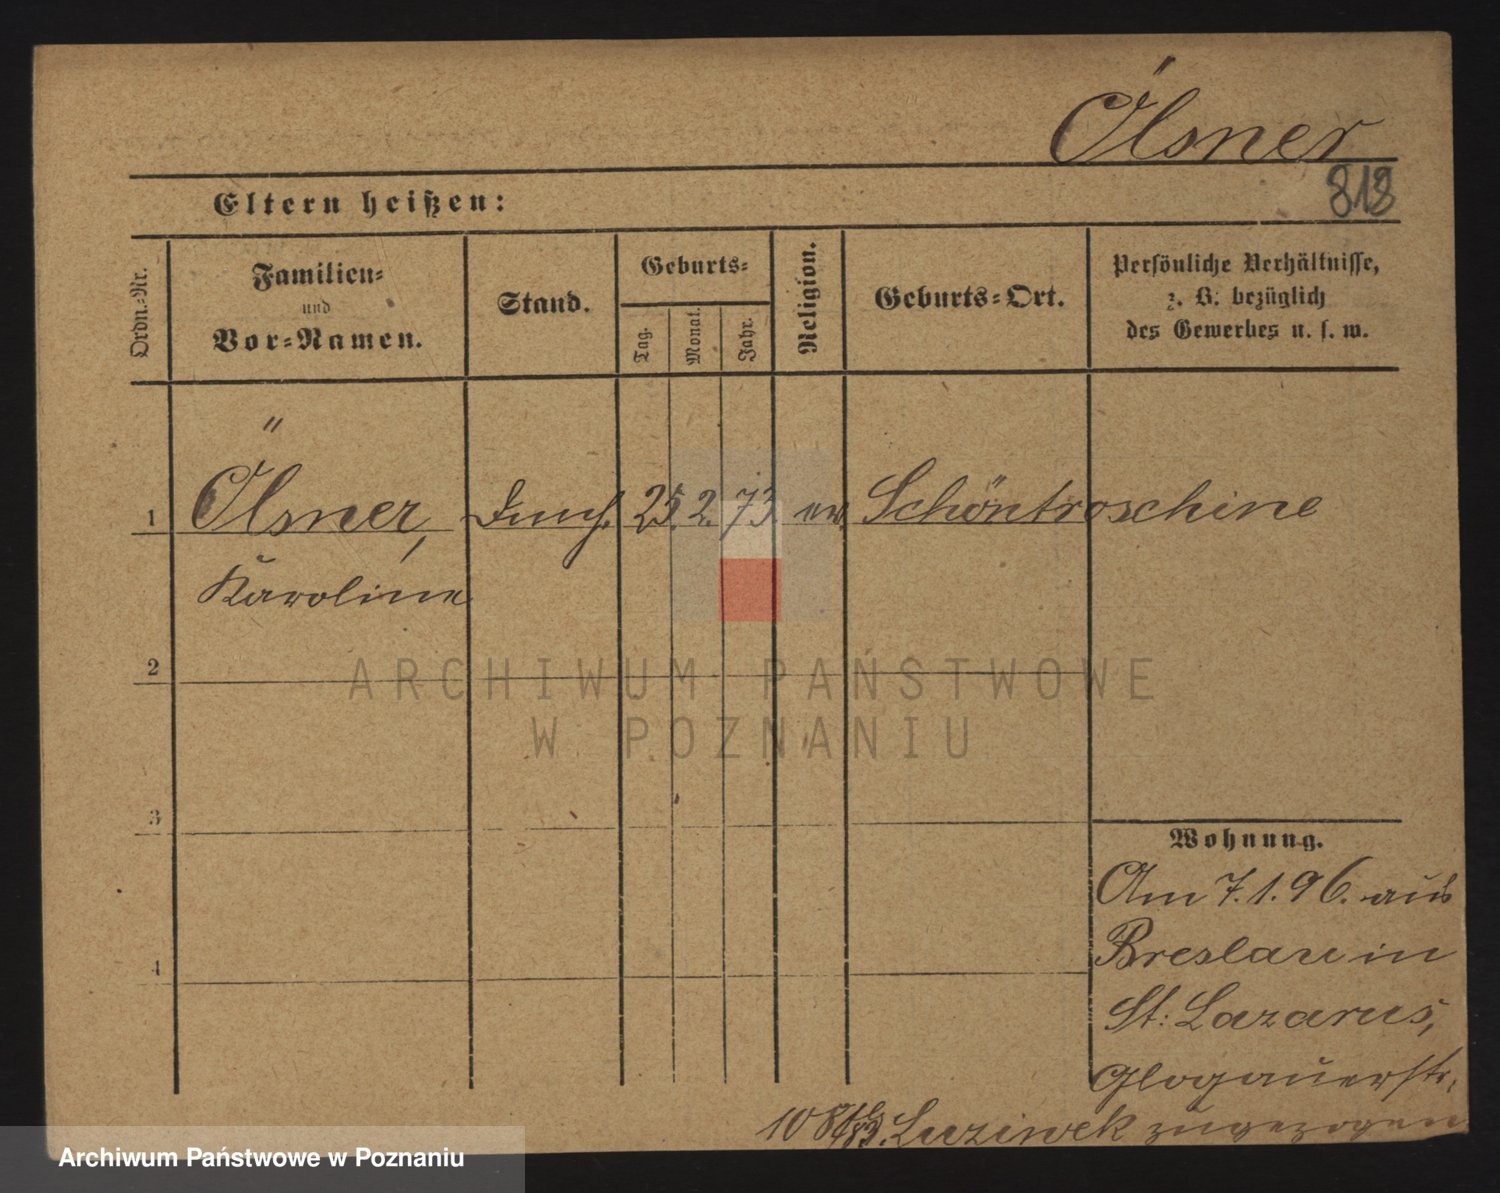 Ölsner
818
Eltern heißen:
Ordn.-Nr.
Familien-
und
Vor-Namen.
Stand.
Geburts-
Tag.
Monat.
Jahr.
Religion.
Geburts-Ort.
Persönliche Verhältnisse,
z. B. bezüglich
des Gewerbes u. s. w.
1 Ölsner, 25. 2. 73. ev Schöntroschine
Karoline
2
ARCHIWUM PAŃSTWOWE
W POZNANIU
3
Wohnung.
Am 7.1.96. aus
Breslau in
4
St. Lazarus,
Glogauerstr.
108 zugezogen
Archiwum Państwowe w Poznaniu